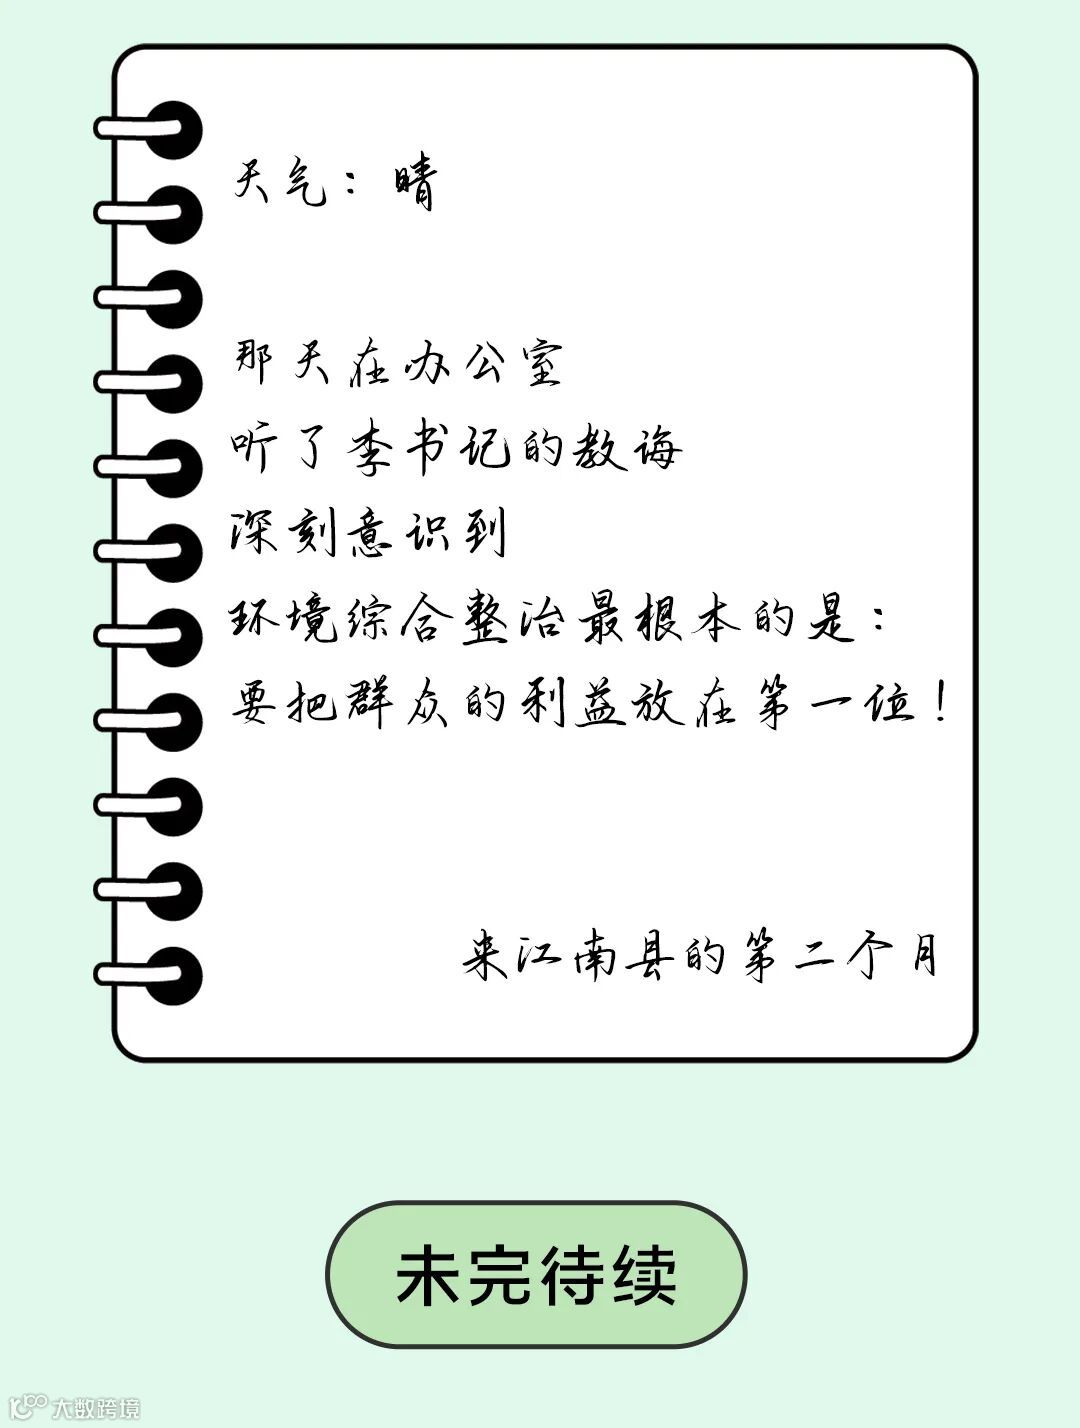 天气：晴
那天在办公室
听了李书记的教诲
深刻意识到
环境综合整治最根本的是：
要把群众的利益放在第一位！
来江南县的第二个月
未完待续
大数跨境